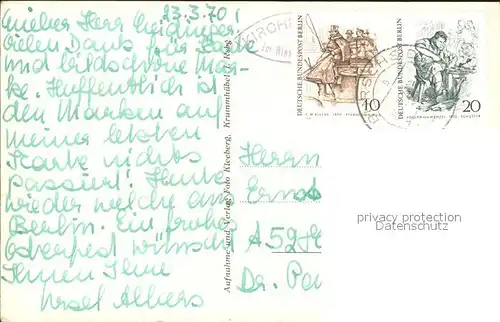 23.3.70
Lieber Herr Neidhofer
vielen Dank für Karte
und bildschöne Mar-
ke. Hoffentlich ist
den Marken auf
meiner letzten
Karte nichts
passiert! Heute
wieder welche aus
Berlin. Ein frohes
Osterfest wünscht
Ihnen Ihre
Ursel Albers
Aufnahme und Verlag Foto Kleeberg, Krummhübel i. Rsgb.
KIRCH
DEUTSCHE BUNDESPOST BERLIN
10
DEUTSCHE BUNDESPOST BERLIN
20
Herrn
Ernst
A 52
Dr.
privacy protection
Datenschutz